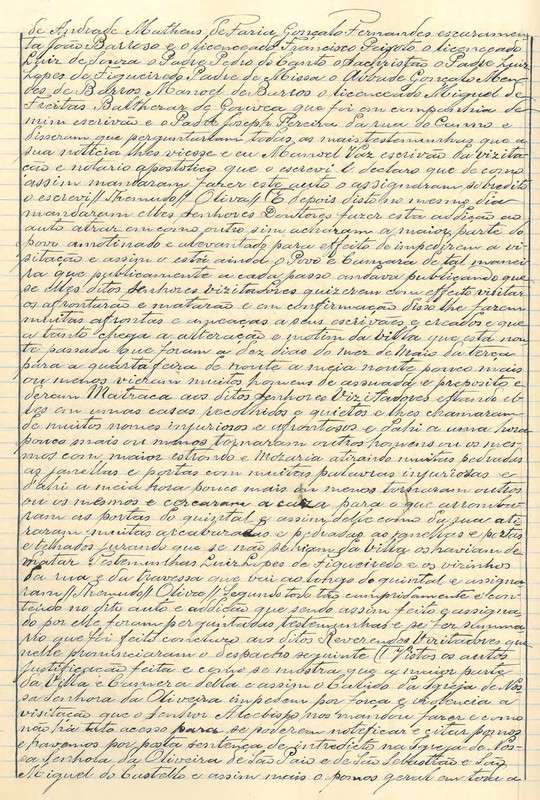 de Andrade Matheus de Faria Gonçalo Fernandes escuramen
ta João Barroso e o licenceado Francisco Peixoto o licenceado
Luiz de Souza o Padre Pedro do Canto o Sachristão o Padre Luiz
Lopes de Figueiredo Padre de Missa o Abbade Gonçalo Men
des de Barros Manoel de Barros o licenceado Miguel de
Freitas Balthezar de Gouvea que foi em companhia de
mim escrivão e o Padre Joseph Pereira da rua do Canno e
disseram que perguntariam todas as mais testemunhas que a
sua noticia lhes viesse e eu Manoel Vaz escrivão da vizita
ção e notario apostolico que o escrevi E declaro que de como
assim mandaram fazer este auto o assignaram sobredito
o escrevi // // Oliva // E depois disto no mesmo dia
mandaram elles Senhores Doutores fazer esta addição ao
auto atraz em como outro sim acharam a maior parte do
povo amotinado e alevantado para effeito de impedirem a vi
sitação e assim o está ainda o Povo e Camara de tal manei
ra que publicamente a cada passo andava publicando que
se elles ditos Senhores Vizitadores quizerem com effeito visitar
os afrontarão e matarão e em confirmação disso lhe fazem
muitas afrontas e ameaças a seus escrivães e creados e que
a tanto chega a alteração e motim da villa que esta noi
te passada que foram a dez dias do mez de Maio da terça
para a quarta feira de noute a meia noute pouco mais
ou menos vieram muitos homens de assuada e preposito e
deram Matraca aos ditos Senhores Vizitadores estando el
les em umas casas recolhidos e quietos e lhes chamaram
de muitos nomes injuriosos e afrontosos e dahi a uma hora
pouco mais ou menos tornaram outros homens ou os mes
mos com maior estrondo e atirando muitas pedradas
as janellas e portas com muitas palavras injuriosas e
dahi a meia hora pouco mais ou menos tornaram outros
ou os mesmos e cercaram a caza para o que arrombá
ram as portas do quintal e assim delle como da rua ati
raram muitas arcabuzadas e pedradas as janellas e portas
e telhados jurando que se não se iriam da villa os haviam de
matar Testemunhas Luiz Lopes de Figueiredo e os visinhos
da rua e da travessa que vai ao longo do quintal e assigna
ram // // Oliva // Segundo tudo tão cumpridamente é con
teúdo no dito auto e addição que sendo assim feito e assigna
do por elle foram perguntadas testemunhas e se fez summa
rio que foi feito concluzo aos ditos Reverendos Vizitadores que
nelle pronunciaram o despacho seguinte // Vistos os autos
justificação feita e como se mostra que a maior parte
da Villa e Camera della e assim o Cabido da Igreja de Nos
sa Senhora da Oliveira impedem por força e violencia a
visitação que o Senhor Arcebispo nos mandou fazer e como
não ha tuto acesso para se poderem notificar e citar pomos
e havemos por posta sentença de interdicto na Igreja de Nos
sa Senhora da Oliveira de São Paio e de São Sebastião e São
Miguel do Castello e assim mais o pomos geral em toda a